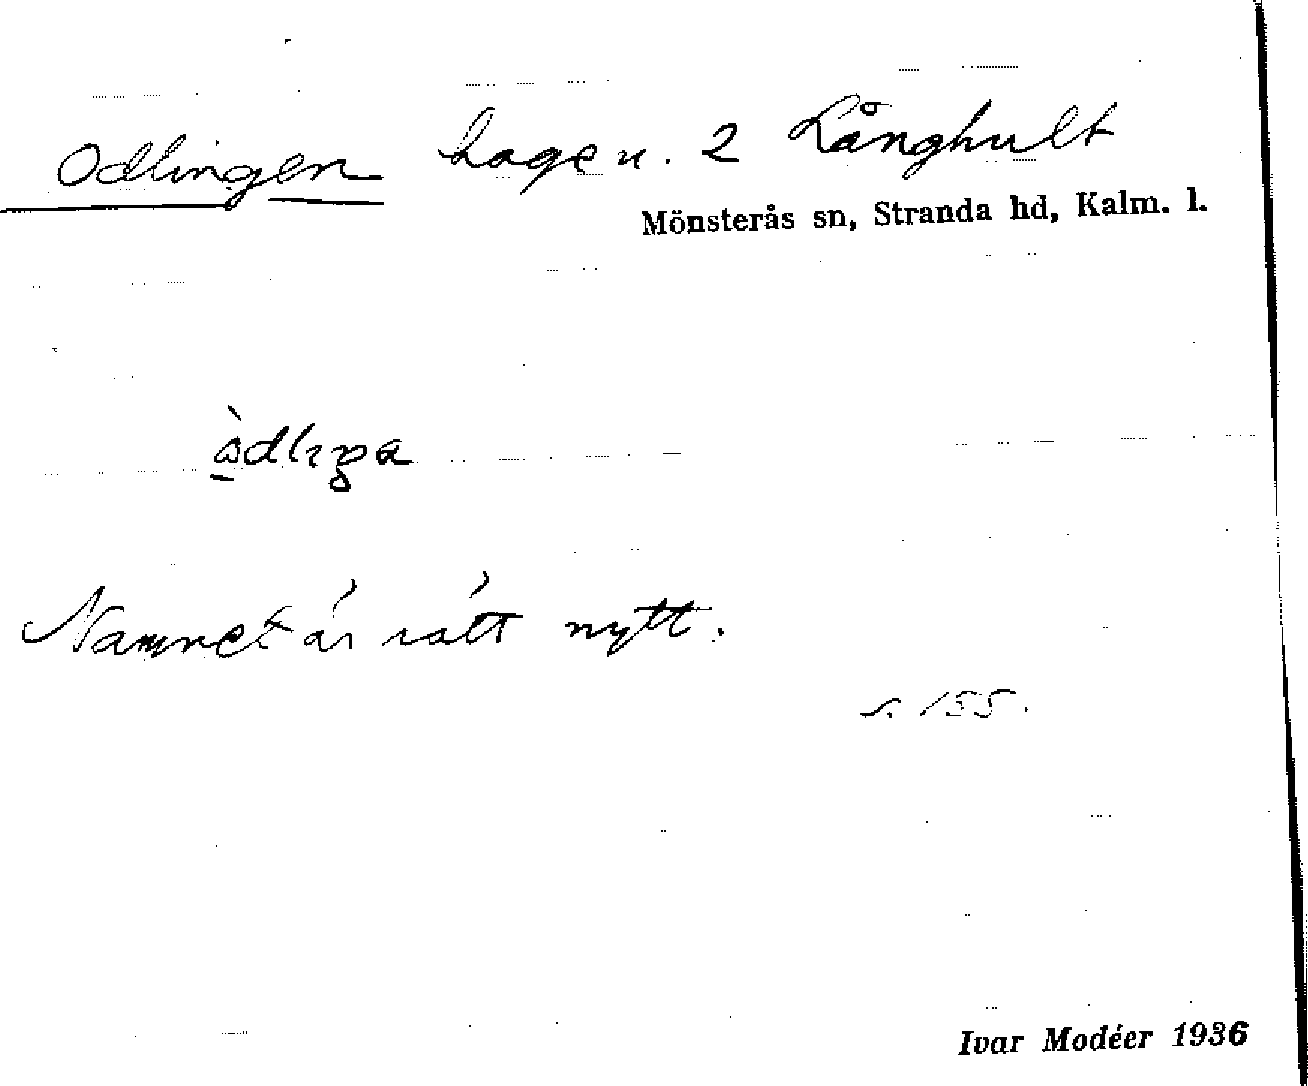 Odlingen hage u. 2 Långhult
Mönsterås sn, Stranda hd, Kalm. l.
Namnet är rätt nytt.
s. 155.
Ivar Modéer 1936